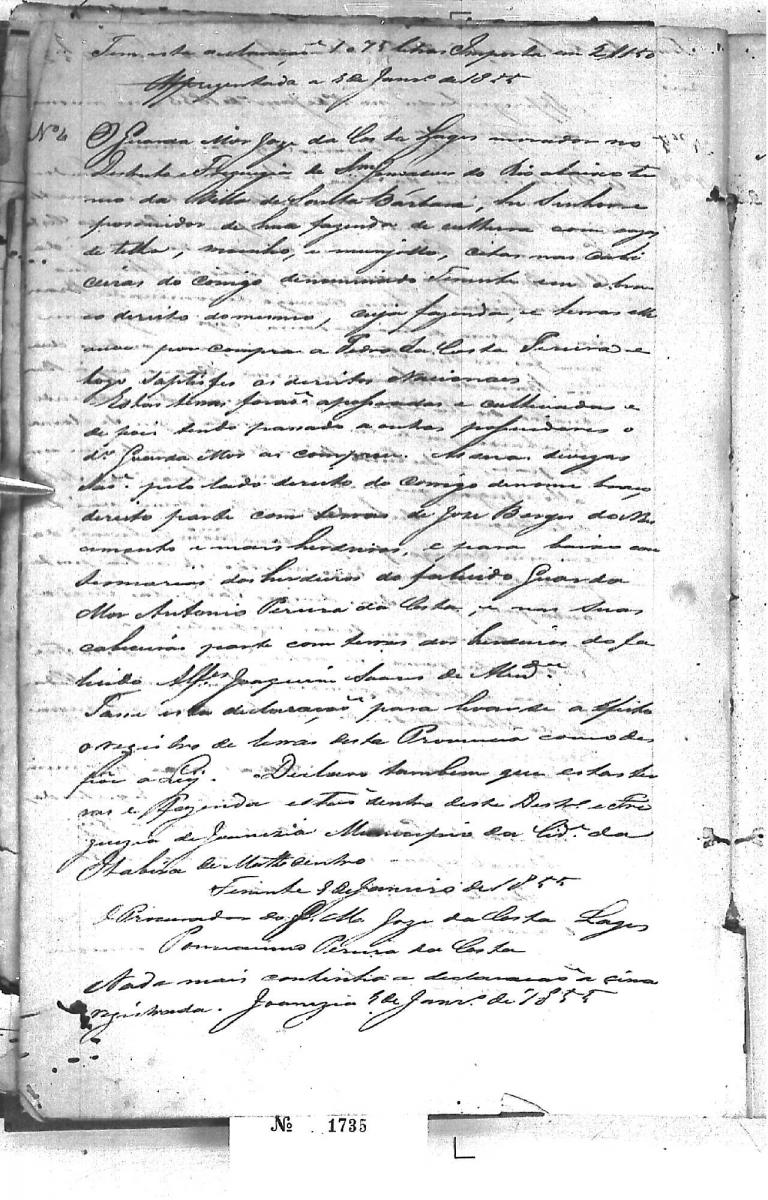 Tem esta declaração 1075 letras Importa em 2$150
Appresentada a 5 de Janrº de 1855
Nº 4 O Guarda Mor Joze da Costa Lages morador no
Destricto e Freguezia de S. do Rio abaixo ter
mo da Villa de Santa Bárbara, he Senhor e
possuidor de hua fazenda de cultura com
de telha, moinho, e munjollo, citas nas cabi
ceiras do corrigo denominado Tenente em o bra
ço direito do mesmo, cuja fazenda, e terras
houve por compra a Pedro da Costa Pereira e
logo saptisfes os direitos Nacionaes
Estas terras forão apossiadas e cultivadas e
de pois tendo passado a outros possuidores o
dº Guarda Mor as comprou. As suas
são pelo lado direito do corrigo denome braço
direito parte com terras de Joze Borges do Nas
cimento e mais herdeiros, e para baixo com
Sesmarias dos herdeiros do falecido Guarda
Mor Antonio Pereira da Costa, e nas suas
cabiceiras parte com terras dos herdeiros do fa
lecido Alferes Joaquim Soares de
Fasse esta declaração para levar-se a efeito
o registro de terras desta Provincia como des
põe a Ley. Declaro tambem que estas ter
ras e Fazenda estão dentro deste Destrº e Fre
guezia de Joanezia Municipio da Cidº da
Itabira de Matto dentro
Tenente 5 de Janeiro de 1855
O Procurador do G. M. Joze da Costa Lages
Pereira da Costa
Nada mais continha a declaração a cima
registrada. Joanezia 5 de Janrº de 1855
Nº 1735